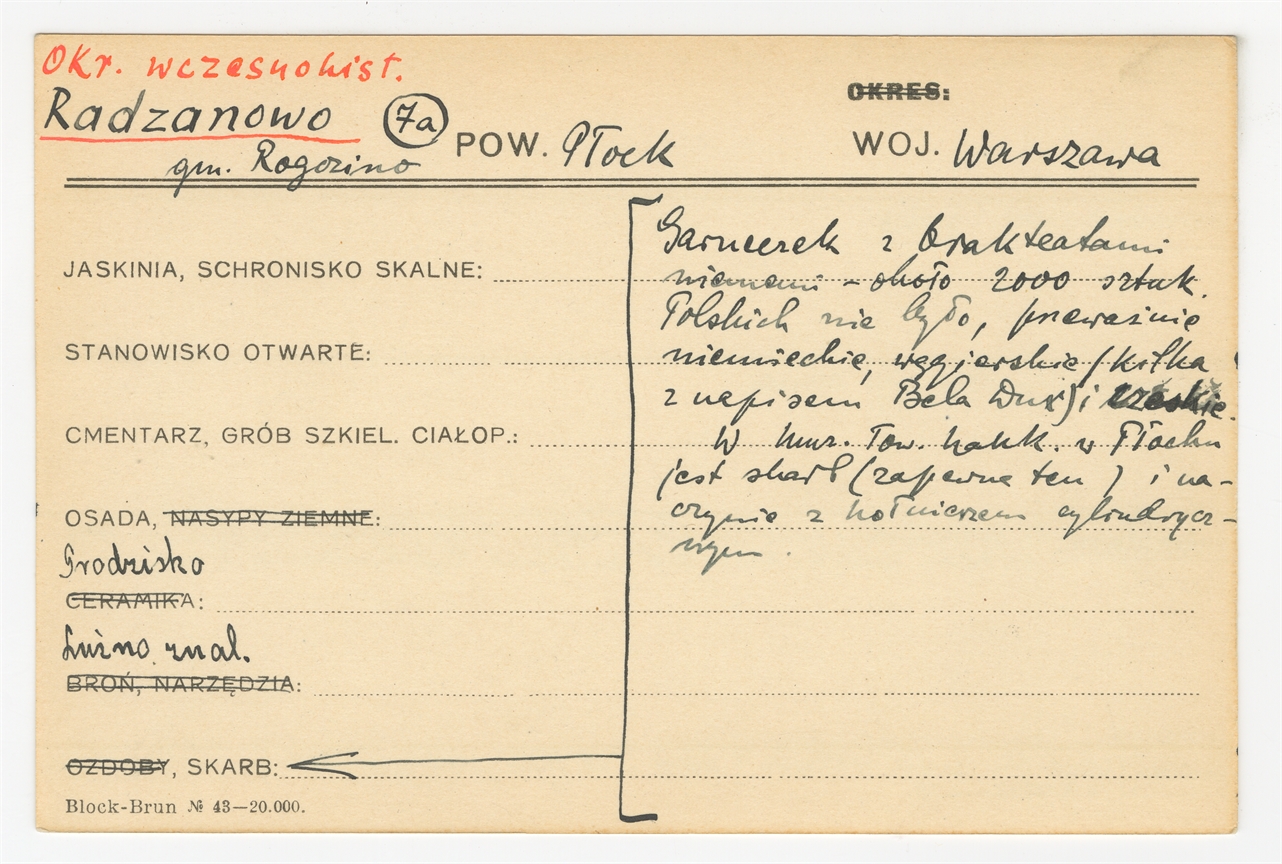 Okr. wczesnohist.
OKRES:
Radzanowo 7a POW. Płock WOJ. Warszawa
gm. Rogozino
JASKINIA, SCHRONISKO SKALNE:
STANOWISKO OTWARTE:
CMENTARZ, GRÓB SZKIEL. CIAŁOP.:
OSADA, NASYPY ZIEMNE:
Grodzisko
CERAMIKA:
Luźno znal.
BROŃ, NARZĘDZIA:
OZDOBY, SKARB:
Block-Brun № 43—20.000.
Garnuszek z brakteatami
niememi - około 2000 sztuk.
Polskich nie było, przeważnie
niemieckie, węgierskie (kilka
z napisem Bela Dux) i czeskie.
W muz. Tow. nauk. w Płocku
jest skarb (zapewne ten) i na-
czynie z kołnierzem cylindrycz-
nym.